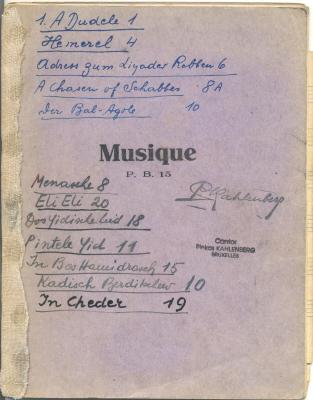 1. A Dudele 1
Hemerel 4
Adress zum Liyader Rebben 6
A Chasen of Schabbes 8A
Der Bal-Agole 10
Musique
P. B. 15
Menasche 8
Eli Eli 20
P. Kahlenberg
Dos Yidische Lied 18
Cantor
Pinkas KAHLENBERG
BRUXELLES
Pintele Yid 11
In Bes Hamidrasch 15
Kadisch 10
In Cheder 19